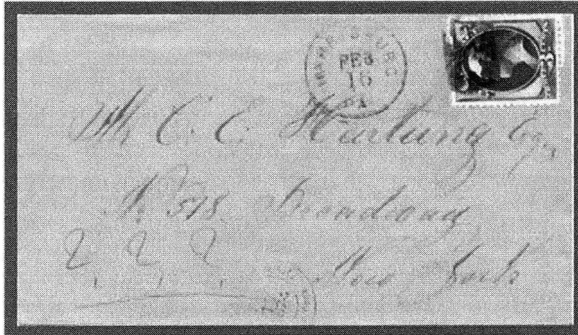 HARRISBURG
FEB
16
PA
C. E. Hartung Esq
No 518 Broadway
? ? ?
New York